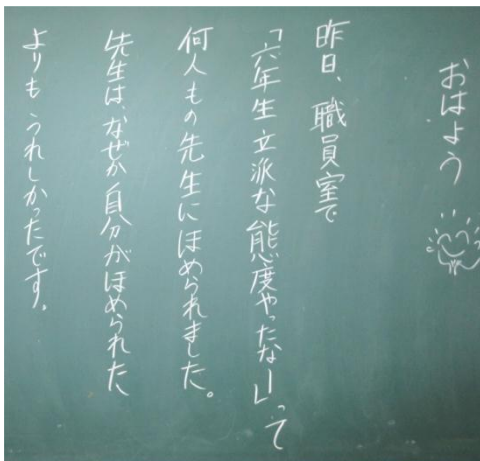 おはよう
昨日、職員室で
「六年生立派な態度やったなー」って
何人もの先生にほめられました。
先生は、なぜか自分がほめられた
よりもうれしかったです。